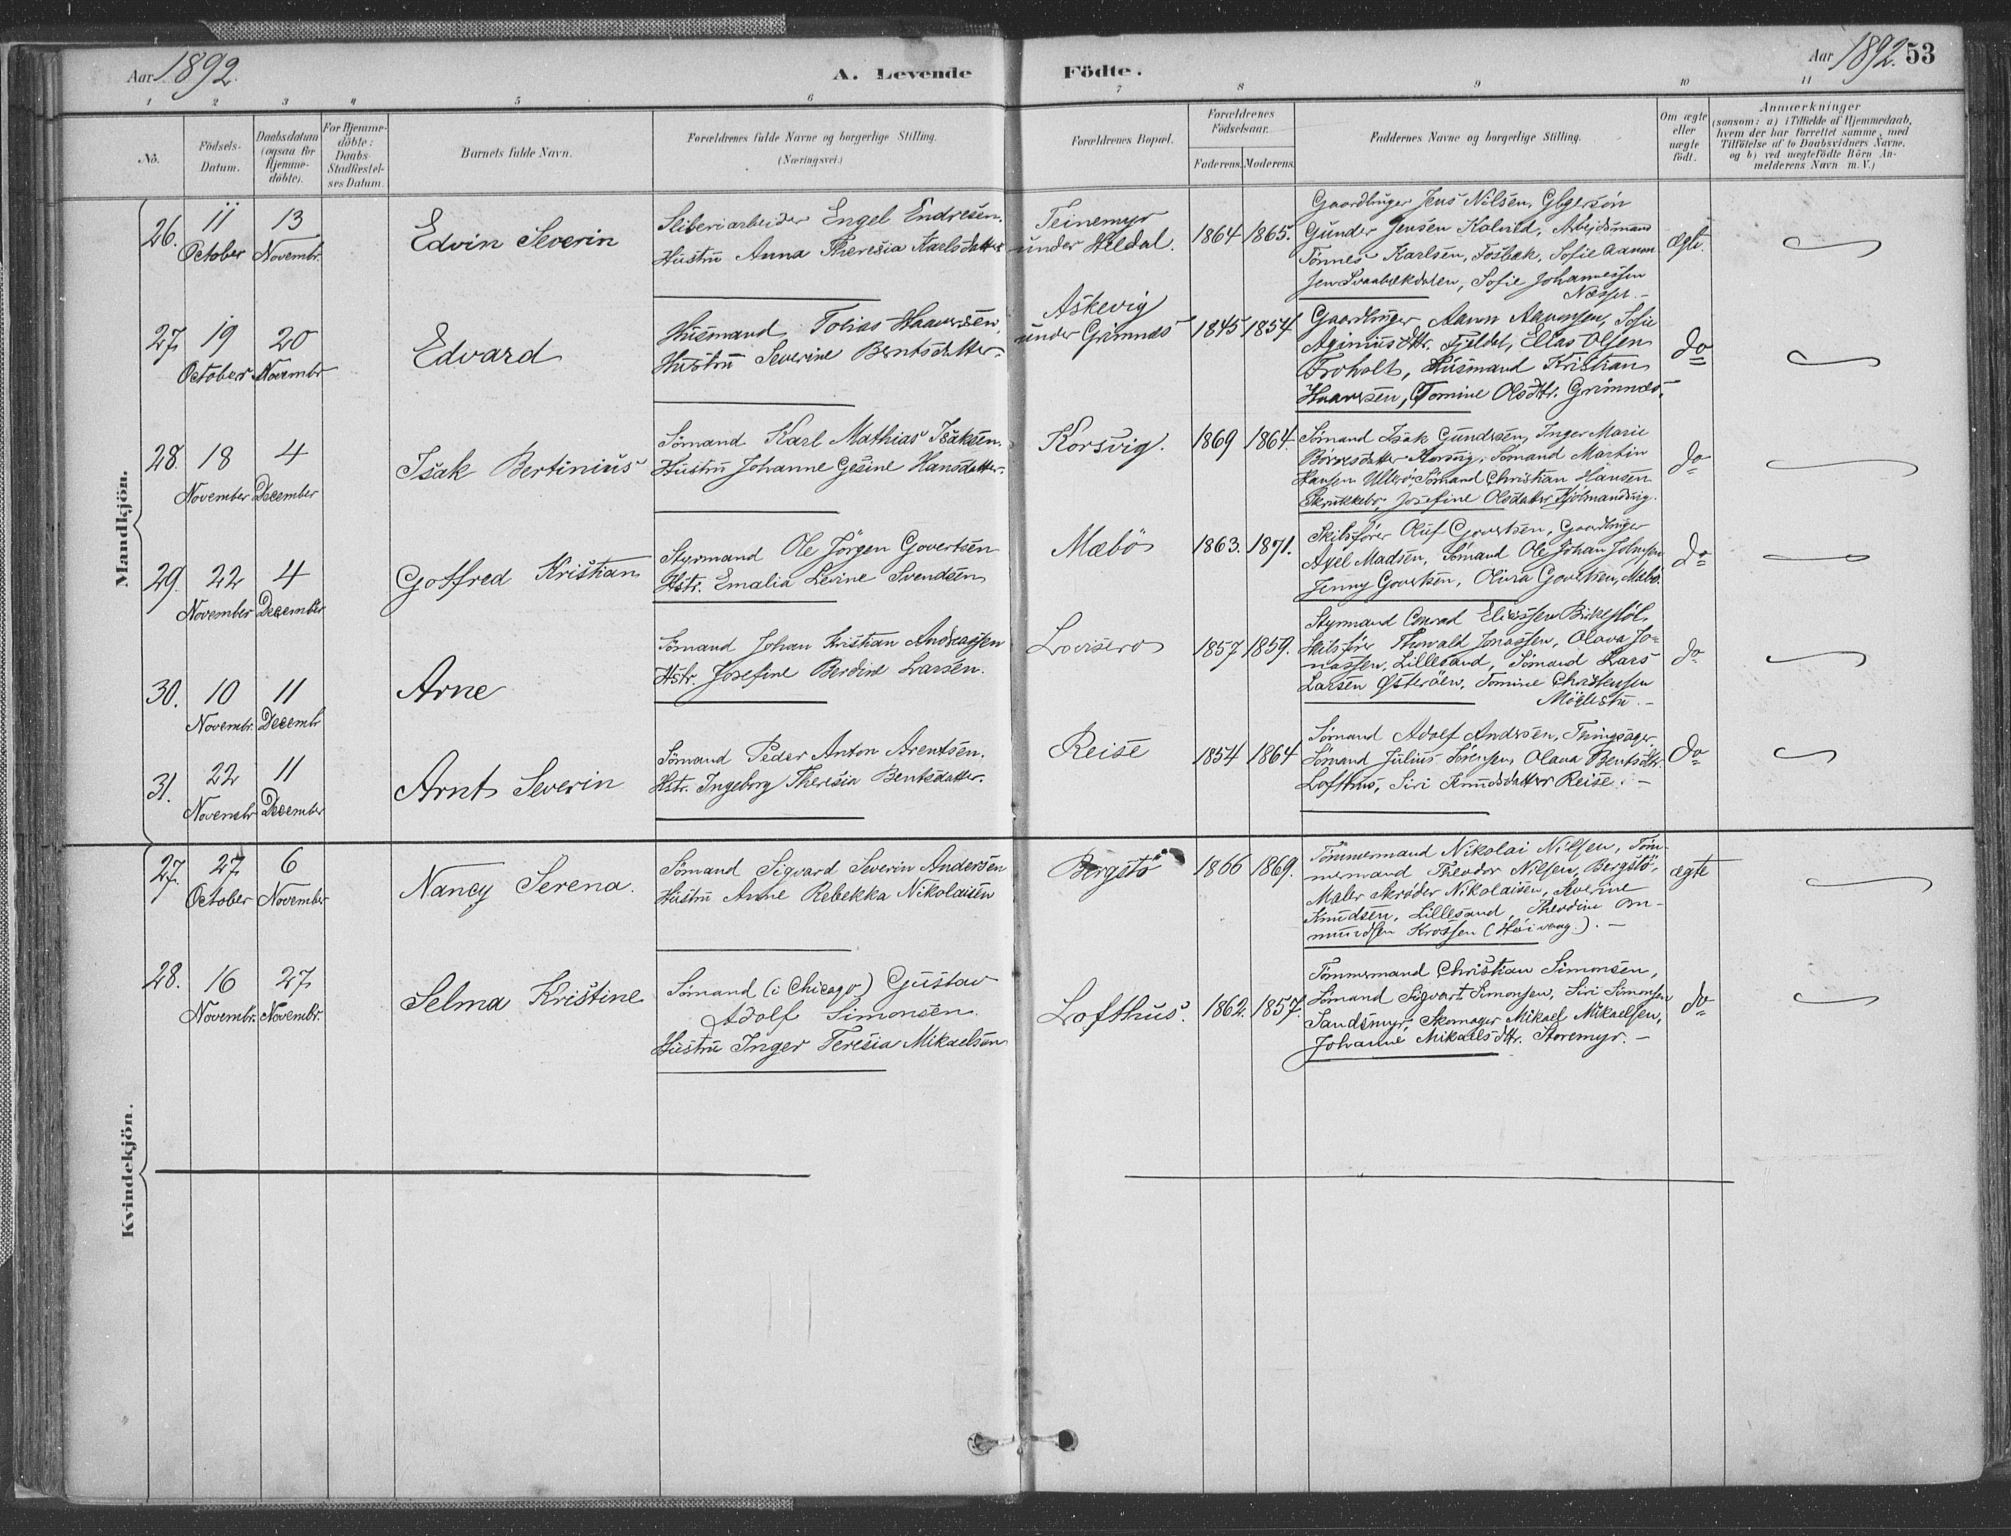 Aar 1892.
A. Levende Födte.
Aar 1892. 53
1 2 3 4 5 6 7 8 9 10 11
No.
Födsels-Datum.
Daabsdatum (ogsaa for Hjemme-döbte).
For Hjemme-döbte: Daabs Stadfæstel-ses Datum.
Barnets fulde Navn.
Forældrenes fulde Navne og borgerlige Stilling. (Næringsvei.)
Forældrenes Bopæl.
Forældrenes Födselsaar.
Faderens. Moderens.
Faddernes Navne og borgerlige Stilling.
Om ægte eller uægte födt.
Anmærkninger
(saasom: a) i Tilfælde af Hjemmedaab,
hvem der har forrettet samme, med
Tilföielse af to Daabsvidners Navne,
og b) ved uægtefödte Börn An-
melderens Navn m. V.)
Mandkjön.
26. 11 October 13 Novembr.
Edvin Severin
Sliberiarbeider Engel Endresen.
Hustru Anna Theresia Karlsdatter
Teinemyr
under Heldal.
1864 1865.
Gaardbruger Jens Nilsen,
Gunder Jensen Kalvild, Arbeidsmand
Tönnes Karlsen, Fosbæk, Sofie Aanon
sen Svaabækdalen, Sofie Johannessen
Næsset. -
ægte.
27. 19 October 20 Novembr
Edvard
Husmand Tobias Haavorsen,
Hustru Severine Berntsdatter.
Askevig
under Grimnes
1845 1854
Gaardbruger Aanon Aanonsen, Sofie
Fjeldet, Elias Olsen
Troholt, Husmand Kristian
Haavorsen, Tomine Olsdtr. Grimnes.
do
28. 18 November 4 December
Isak Bertinius
Sömand Karl Mathias Isaksen.
Hustru Johanne Gesine Hansdatter.
Korsvig.
1869 1864.
Sömand Isak Gundersen, Inger Marie
Korsvig, Sömand Martin
Hansen Ulleröe Sömand Christian Hansen
Josefine Olsdatter
do
29. 22 November 4 December
Gotfred Kristian
Styrmand Ole Jörgen Govertsen
Hstr. Emalia Levine Svendsen
Mæbö
1863. 1871.
Skibsförer Oluf Govertsen, Gaardbruger
Axel Madsen, Sömand Ole Johan Johnsen
Jenny Govertsen, Olivia Govertsen, Mæbö.
do
30. 10 Novembr. 11 Decembr
Arne
Sömand Johan Kristian Andreassen
Hstr. Josefine Berdine Larsen.
Lovisero
1857 1859.
Styrmand Conrad Eliassen Birkestöl,
Skibsförer Thorvald Jonassen, Olava Jo-
nassen, Lillesand, Sömand Lars
Larsen Österöen, Tomine Christensen
Möglestu. -
do
31. 22 Novembr 11 December
Arnt Severin
Sömand Peder Anton Arentsen.
Hstr. Ingeborg Theresia Bentsdatter.
Reise
1854 1864
Sömand Adolf Andersen, Thingsager,
Sömand Julius Sörensen, Olava Bentsdtr.
Lofthus, Siri Knudsdatter Reise. -
do
Kvindekjön.
27. 27 October 6 November
Nancy Serena.
Sömand Sigvard Severin Andersen
Hustru Anne Rebekka Nikolaisen
Bergstö
1866 1869.
Tömmermand Nikolai Nilsen, Töm-
mermand Theodor Nilsen, Bergstö,
Maler Skröder Nikolaisen, Severine
Knudsen, Lillesand, Theodine Om-
mundsen Krossen (Höivaag). -
ægte
28. 16 Novembr. 27 Novembr.
Selma Kristine
Sömand (i Chicago) Gustav
Adolf Simonsen.
Hustru Inger Teresia Mikaelsen
Lofthus.
1862. 1857.
Tömmermand Christian Simonsen,
Sömand Sigvart Simonsen, Siri Simonsen
Sandsmyr, Skomager Mikael Mikaelsen,
Johanne Mikaelsdtr. Storemyr. -
do